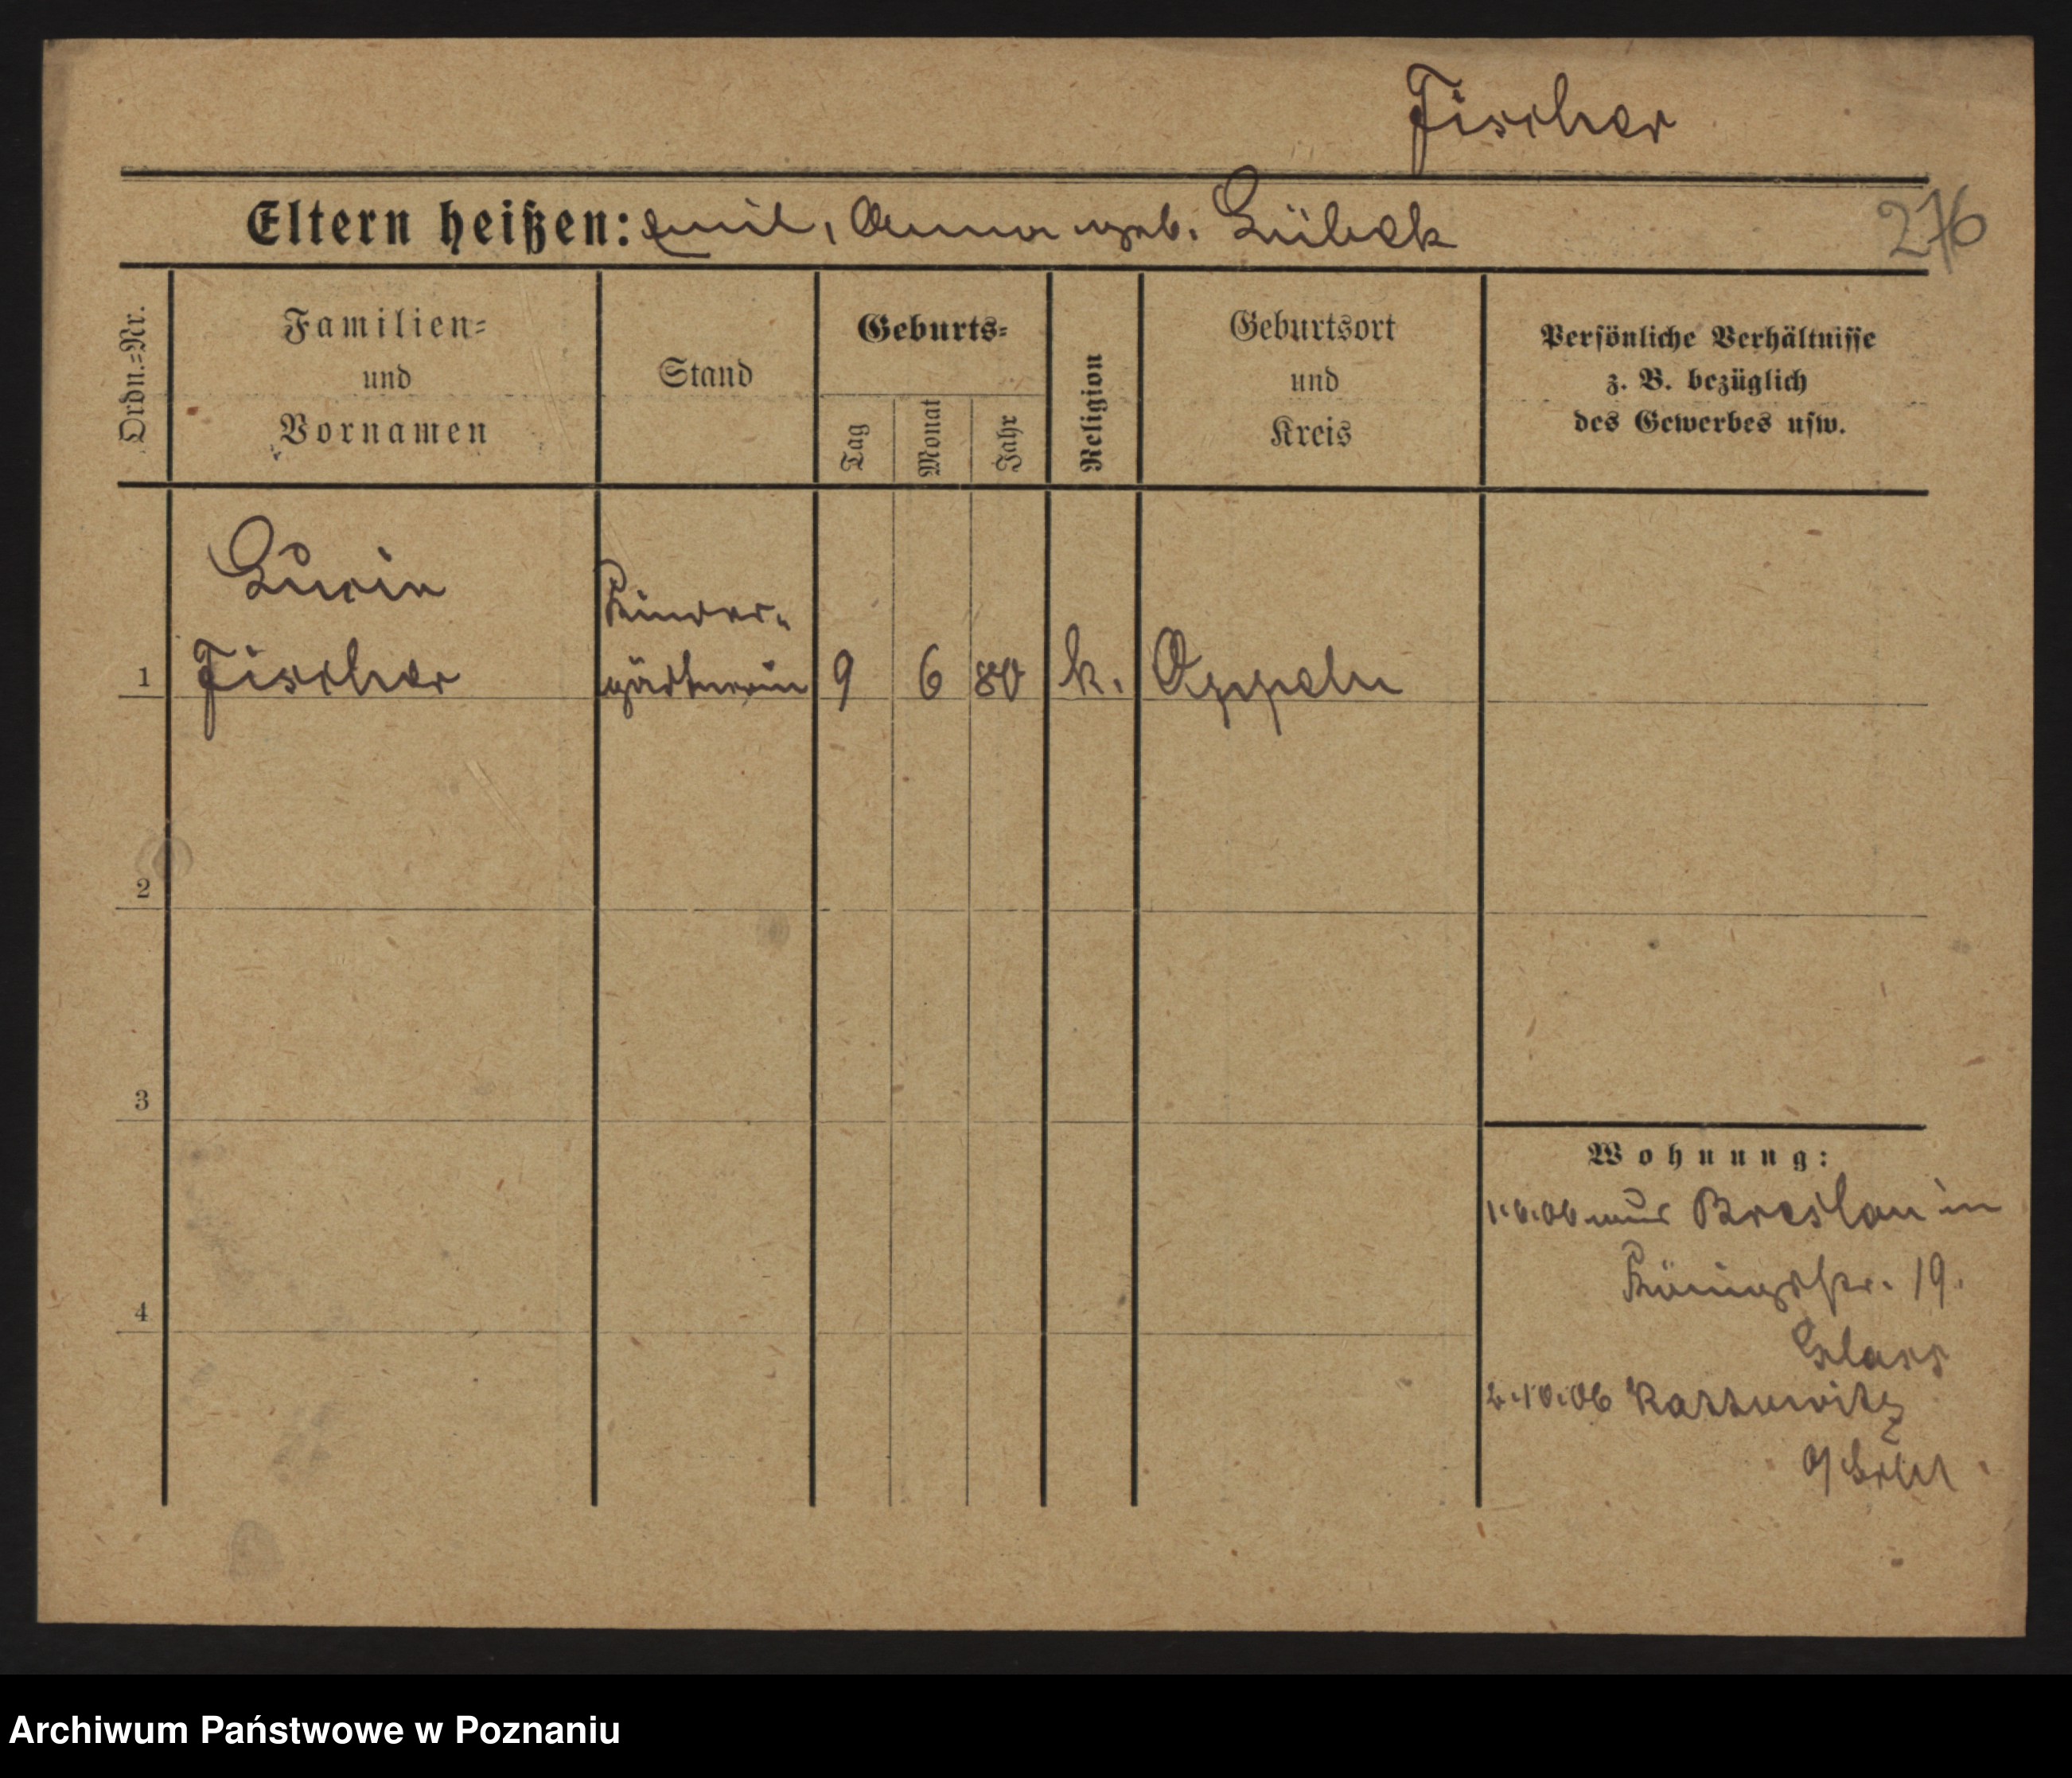 Fischer
Eltern heißen: Emil, Anna geb. Lübeck
276
Ordn.=Nr.
Familien=
und
Vornamen
Stand
Geburts=
Tag
Monat
Jahr
Religion
Geburtsort
und
Kreis
Persönliche Verhältnisse
z. B. bezüglich
des Gewerbes usw.
Lucie
Kinder-
1 Fischer gärtnerin 9 6 80 k. Oppeln
2
3
Wohnung:
1.6.06 aus Breslau in
Königstr. 19.
4
2.10.06 Kattowitz
O/Schl
Archiwum Państwowe w Poznaniu